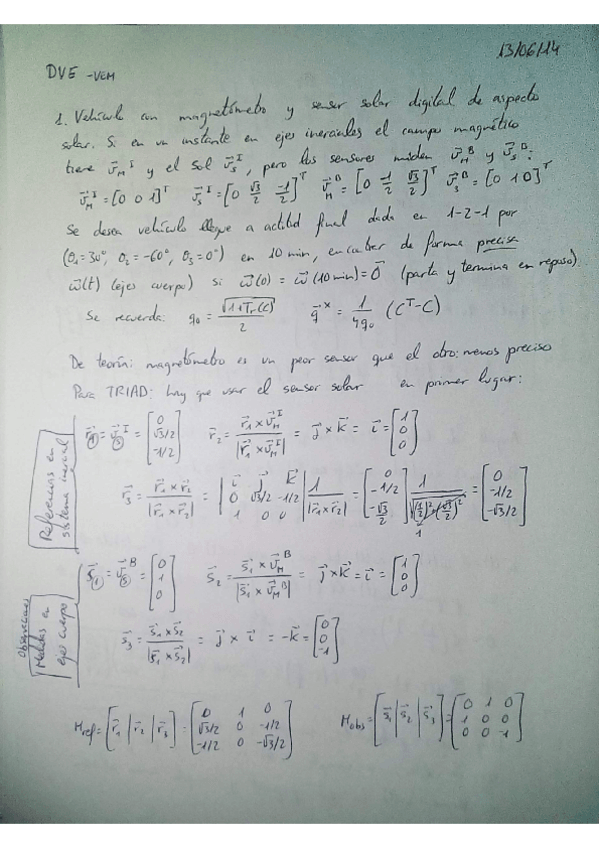 13/06/14
DVE - VEM
1. Vehículo con magnetómetro y sensor solar digital de aspecto
solar. Si en un instante en ejes inerciales el campo magnético
tiene v⃗_M^I y el Sol v⃗_S^I, pero los sensores miden v⃗_M^B y v⃗_S^B:
v⃗_M^I = [0 0 1]^T v⃗_S^I = [0 √3/2 -1/2]^T v⃗_M^B = [0 -1/2 √3/2]^T v⃗_S^B = [0 1 0]^T
Se desea vehículo llegue a actitud final dada en 1-2-1 por
(θ₁=30°, θ₂=-60°, θ₃=0°) en 10 min, encontrar de forma precisa
ω⃗(t) (ejes cuerpo) si ω⃗(0) = ω⃗(10min) = 0⃗ (parta y termina en reposo).
Se recuerda: q₀ = √(1+Tr(C))/2 q⃗^× = 1/(4q₀) (C^T-C)
De teoría: magnetómetro es un peor sensor que el otro: menos preciso
Para TRIAD: hay que usar el sensor solar en primer lugar:
Referencias en
sistema inercial
r⃗₁ = v⃗_S^I = [0; √3/2; -1/2] r⃗₂ = (r⃗₁ × v⃗_M^I)/|r⃗₁ × v⃗_M^I| = j⃗ × k⃗ = i⃗ = [1; 0; 0]
r⃗₃ = (r⃗₁ × r⃗₂)/|r⃗₁ × r⃗₂| = |i⃗ j⃗ k⃗; 0 √3/2 -1/2; 1 0 0| 1/|r⃗₁ × r⃗₂| = [0; -1/2; -√3/2] 1/√((1/2)²+(√3/2)²) = [0; -1/2; -√3/2]
1
Observaciones
Medidas en
ejes cuerpo
s⃗₁ = v⃗_S^B = [0; 1; 0] s⃗₂ = (s⃗₁ × v⃗_M^B)/|s⃗₁ × v⃗_M^B| = j⃗ × k⃗ = i⃗ = [1; 0; 0]
s⃗₃ = (s⃗₁ × s⃗₂)/|s⃗₁ × s⃗₂| = j⃗ × i⃗ = -k⃗ = [0; 0; -1]
M_ref = [r⃗₁ | r⃗₂ | r⃗₃] = [0 1 0; √3/2 0 -1/2; -1/2 0 -√3/2] M_obs = [s⃗₁ | s⃗₂ | s⃗₃] = [0 1 0; 1 0 0; 0 0 -1]